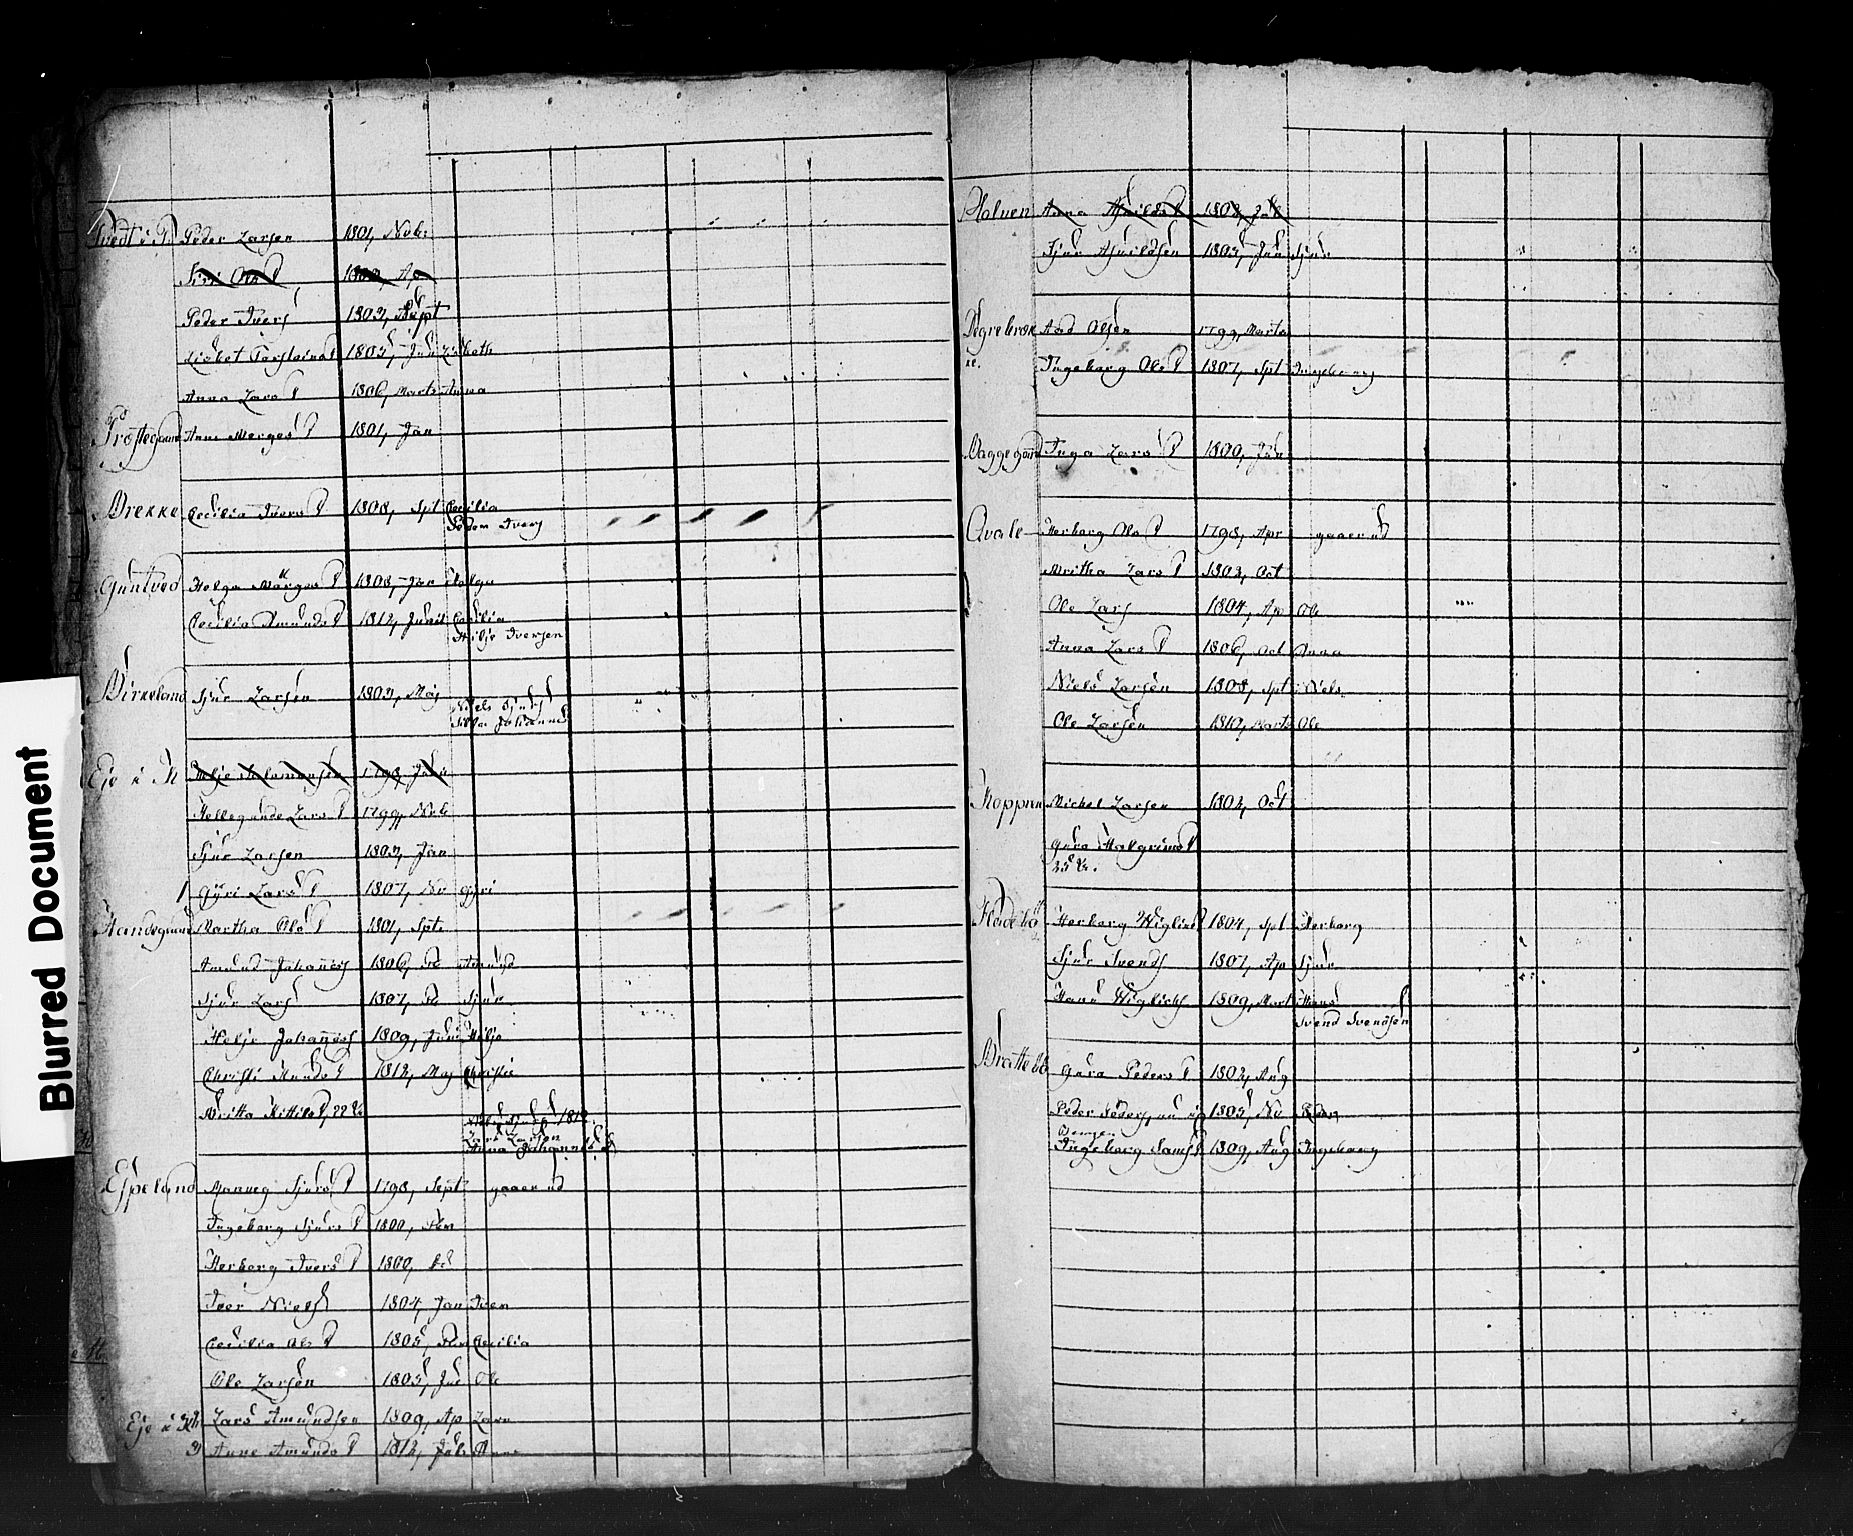 Blurred Document
Tvedt i Peder Larsen 1801, Novb:
Siri Ols D 1802, Ap
Peder Ivers 1802, Sept
Lisbet Torsteins D 1805, Jun Lisbeth
Anna Lars D 1806, Marts Anna
Præstegaard Anne Morges D 1801, Jan
Brekke Cecilia Ivers D 1808, Spt Cecilia
Peder Ivers
Guntved Helga Morges D 1808, Jan Helga
Cecilia Amunds D 1812, Junii Cecilia
Helje Iversen
Birkeland Sjur Larsen 1802, Maj
Niels Sjurs
Johannes
Eje i Helje Salamonsen 1798, Jan
Hellegunde Lars D 1799, Novb
Sjur Larsen 1802, Jan
1 Gyri Lars D 1807, No Gyri
Martha Ols D 1801, Spt:
Amund Johannes 1806, Amund
Sjur Lars 1807, Sjur
Helje Johannes 1809, Juni Helje
Christi Amunds D 1812, Maj Christi
Britta Kittils D, 22 1812
Lars Larsen
Anna Johannes D
Espeland Manneg Sjurs D 1798, Sept gaaer ud
Ingeborg Sjurs D 1800,
Herborg Ivers D 1800,
Iver Niels 1804, Jan Iver
Cecilia Ols D 1805, Cecilia
Ole Larsen 1805, Ole
Eje i Lars Amundsen 1809, Ap Lars
Anne Amunds D 1812, Anne
Holven Anna D 1802,
Sjur 1805, Jun Sjur
Degrebrek- Aad Olsen 1799, Marts
ke. Ingeborg Ols D 1807, Spt Ingeborg
Baggegaard Inga Lars D 1800, Jan
Qvale Herborg Ols D 1798, Apr gaaer ud
Britha Lars D 1802, Oct
Ole Lars 1804, Ap Ole
Anna Lars D 1806, Oct Anna
Niels Larsen 1808, Spt Niels
Ole Larsen 1810, Marts Ole
Koppen Michel Larsen 1802, Oct
Guro Halgrims D
Hadebø Herborg Wiglics D 1804, Spt Herborg
Sjur Svends 1807, Ap Sjur
Hans Wiglichs 1809, Mart Hans
Svend Svendsen
Brattebø Guro Peders D 1802, Aug
Peder Peders, 1805, No Peder
Ingeborg Sams D 1809, Aug Ingeborg